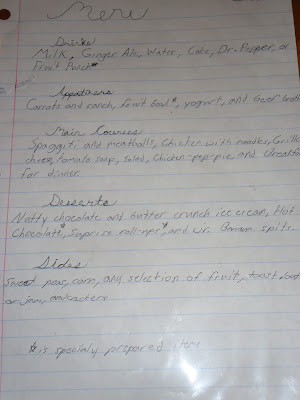 Menu
Drinks
Milk, Ginger Ale, Water, Coke, Dr. Pepper, or
Fruit Punch
Appitizers
Carrots and ranch, fruit bowl*, yogurt, and beef broth
Main Courses
Spaggiti and meatballs, Chicken with noodles, Grille
cheese, tomato soup, salad, Chicken-pop-pie, and Breakfa
for dinner.
Desserts
Nutty chocolate and butter crunch ice cream, Hot
Chocolate*, Suprise roll-ups*, and banana splits.
Sides
Sweet peas, corn, any selection of fruit, toast, butt
or jam, and crackers
* is specialy prepared items